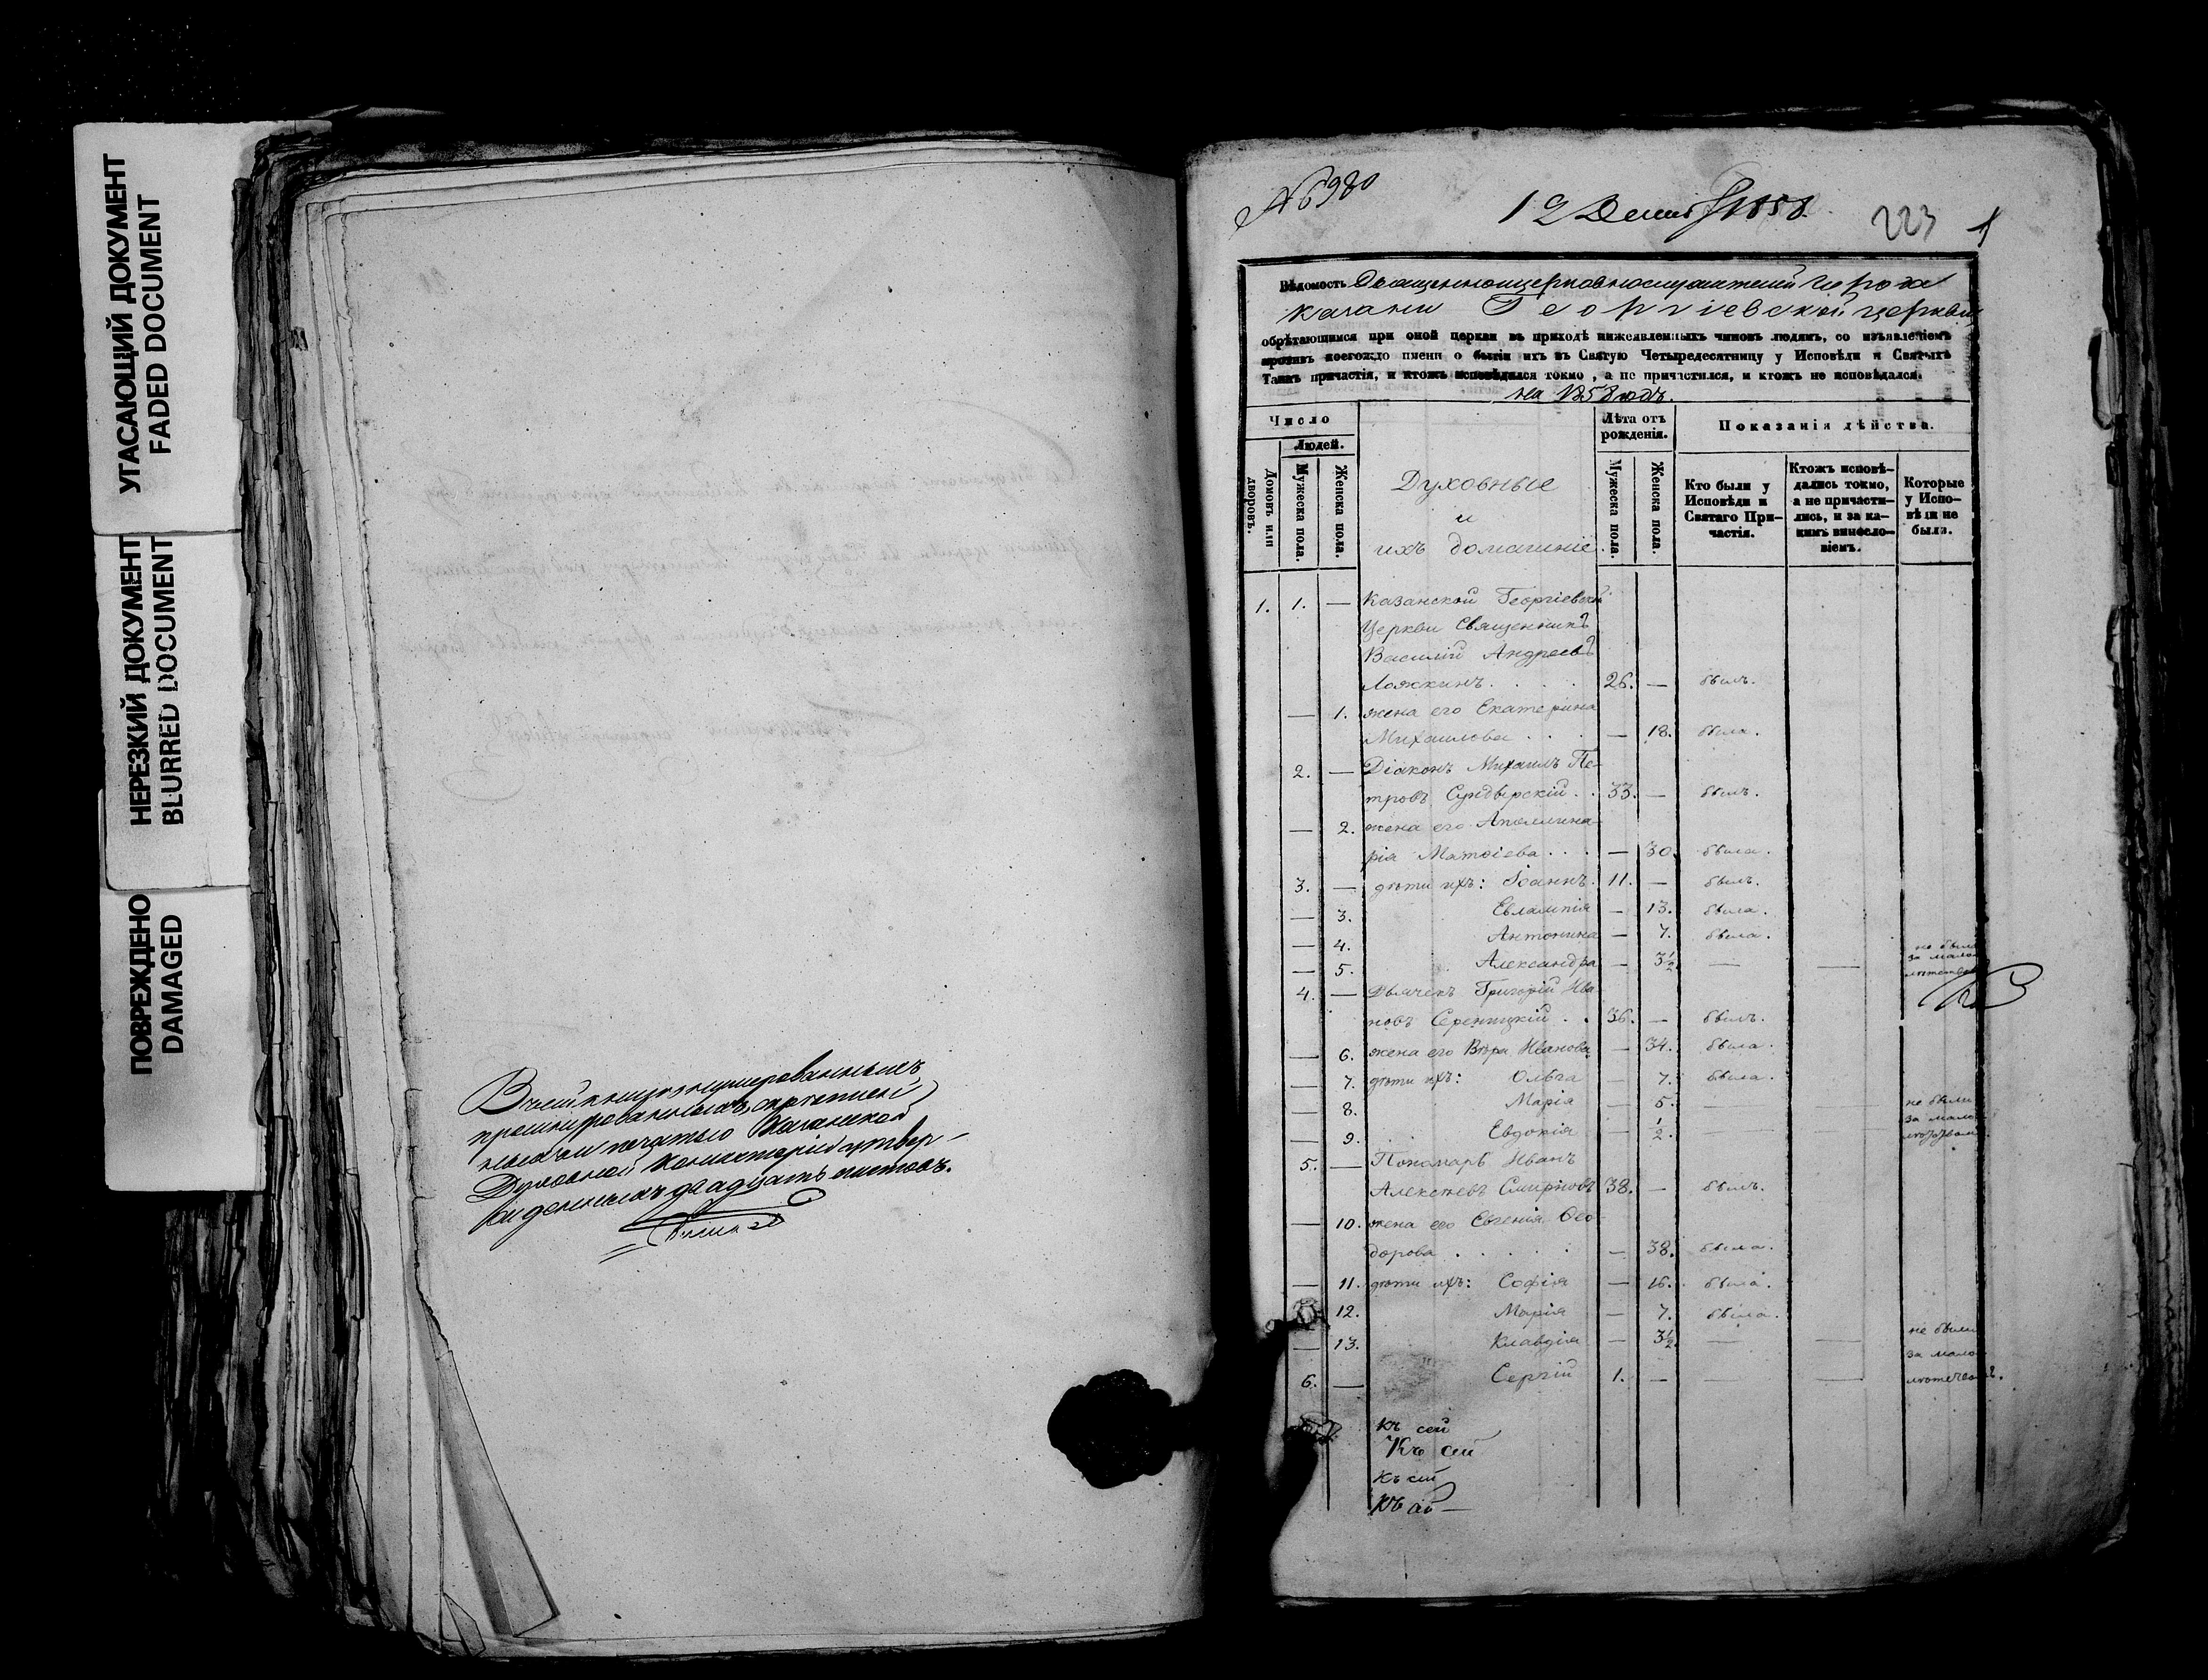 УГАСАЮЩИЙ ДОКУМЕНТ
FADED DOCUMENT
НЕРЕЗКИЙ ДОКУМЕНТ
BLURRED DOCUMENT
ПОВРЕЖДЕНО
DAMAGED
В сей книге занумерованныхъ
прошнурованныхъ, скрепленныхъ
печатью Казанской
Духовной Консисторіи
двадцать листовъ.
№ 6980
12 1858.
223 1
Вѣдомость Священноцерковнослужителей города
Казани Георгіевской церкви
обрѣтающимся при оной церкви въ приходѣ нижеявленныхъ чиновъ людямъ, со изъявленіемъ
противъ коегождо имени о бытіи ихъ въ Святую Четыредесятницу у Исповѣди и Святыхъ
Таинъ причастія, и ктожъ исповѣдался токмо, а не причастился, и ктожъ не исповѣдался.
на 1858 годъ.
Число
Людей.
Домовъ или дворовъ.
Мужеска пола.
Женска пола.
Духовные
и
ихъ домашніе.
Лѣта отъ рожденія.
Мужеска пола.
Женска пола.
Показанія дѣйства.
Кто были у Исповѣди и Святаго Причастія.
Ктожъ исповѣдались токмо, а не причастились, и за какимъ винословіемъ.
Которые у Исповѣди не были.
1. 1. — Казанской Георгіевской
Церкви Священникъ
Василій Андреевъ
Ложкинъ. . . . 26. — былъ.
— 1. жена его Екатерина
Михаилова . . . — 18. была.
2. — Діаконъ Михаилъ Пе-
тровъ Сундырскій . . 33. — былъ.
— 2. жена его Аполлина-
рія Матѳіева . . . — 30. была.
3. — дѣти ихъ: Іоаннъ. 11. — былъ.
— 3. Евлампія — 13. была.
— 4. Антонина — 7. была.
— 5. Александра — 3½ — — не была за мало-лѣтствомъ
4. — Дьячекъ Григорій Ива-
новъ Серницкій . . 36. — былъ.
— 6. жена его Вѣра Иванова — 34. была.
— 7. дѣти ихъ: Ольга — 7. была.
— 8. Марія — 5. — — не были
за мало-
— 9. Евдокія — ½. — —
5. — Пономарь Иванъ
Алексѣевъ Смирновъ 38. — былъ.
— 10. жена его Евгенія Ѳео-
дорова . . . . . — 38. была.
— 11. дѣти ихъ: Софія — 16. была.
12. Марія — 7. была.
— 13. Клавдія — 3½ — — не были
за мало-
6. — Сергій 1. — — — лѣтствомъ.
Къ сей
Къ сей
Къ сей
Къ сей —